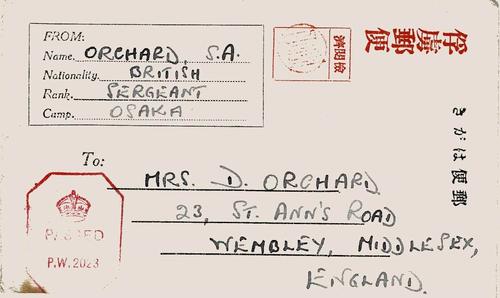 FROM:
Name. ORCHARD, S.A.
Nationality. BRITISH
Rank. SERGEANT
Camp. OSAKA
濟閲檢
便郵虜俘
さがは便郵
To:
MRS. D. ORCHARD
23, ST. ANN'S ROAD
WEMBLEY, MIDDLESEX,
ENGLAND.
PASSED
P.W. 2023